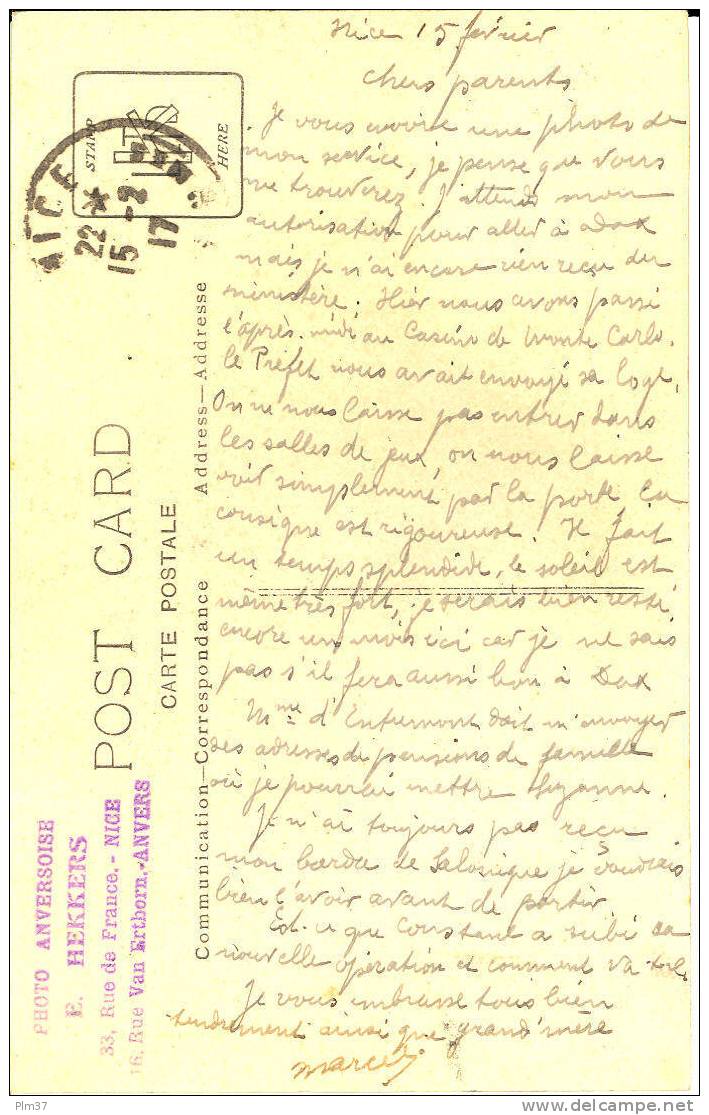 Nice 15 février
chers parents
Je vous envoie une photo de
mon service, je pense que vous
me trouverez. J'attends mon
autorisation pour aller à Dax
mais je n'ai encore rien reçu du
ministère. Hier nous avons passé
l'après-midi au Casino de Monte Carlo.
le Préfet nous avait envoyé sa loge.
On ne nous laisse pas entrer dans
les salles de jeux, on nous laisse
voir simplement par la porte la
consigne est rigoureuse. Il fait
un temps splendide, le soleil est
même très fort, je serais bien resté
encore un mois ici car je ne sais
pas s'il fera aussi bon à Dax
Mme d'Entremont doit m'envoyer
des adresses de pensions de famille
où je pourrai mettre Suzanne.
Je n'ai toujours pas reçu
mon de Salonique je voudrais
bien l'avoir avant de partir
Est-ce que Constant a subi sa
nouvelle opération et comment va-t-il
Je vous embrasse tous bien
tendrement ainsi que grand'mère
Marcel
POST CARD
CARTE POSTALE
Communication—Correspondance
Address—Addresse
STAMP
HERE
NICE
22 *
15 - 2
17
PHOTO ANVERSOISE
E. HEKKERS
33, Rue de France. - NICE
16, Rue Van Ertborn,-ANVERS
Plm37
delcampe.net